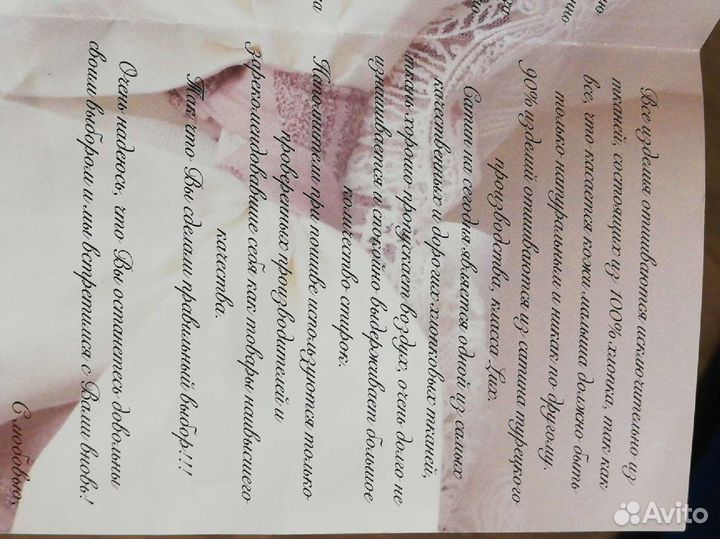 Все изделия отшиваются исключительно из
тканей, состоящих из 100% хлопка, так как
все, что касается кожи малыша должно быть
только натуральным и никак по другому.
90% изделий отшиваются из сатина турецкого
производства, класса Lux.
Сатин на сегодня является одной из самых
качественных и дорогих хлопковых тканей,
ткань хорошо пропускает воздух, очень долго не
изнашивается и спокойно выдерживает большое
количество стирок.
Наполнители при пошиве используются только
проверенных производителей и
зарекомендовавшие себя как товары наивысшего
качества.
Так, что Вы сделали правильный выбор!!!
Очень надеюсь, что Вы останетесь довольны
своим выбором и мы встретимся с Вами вновь!
С любовью,
Avito